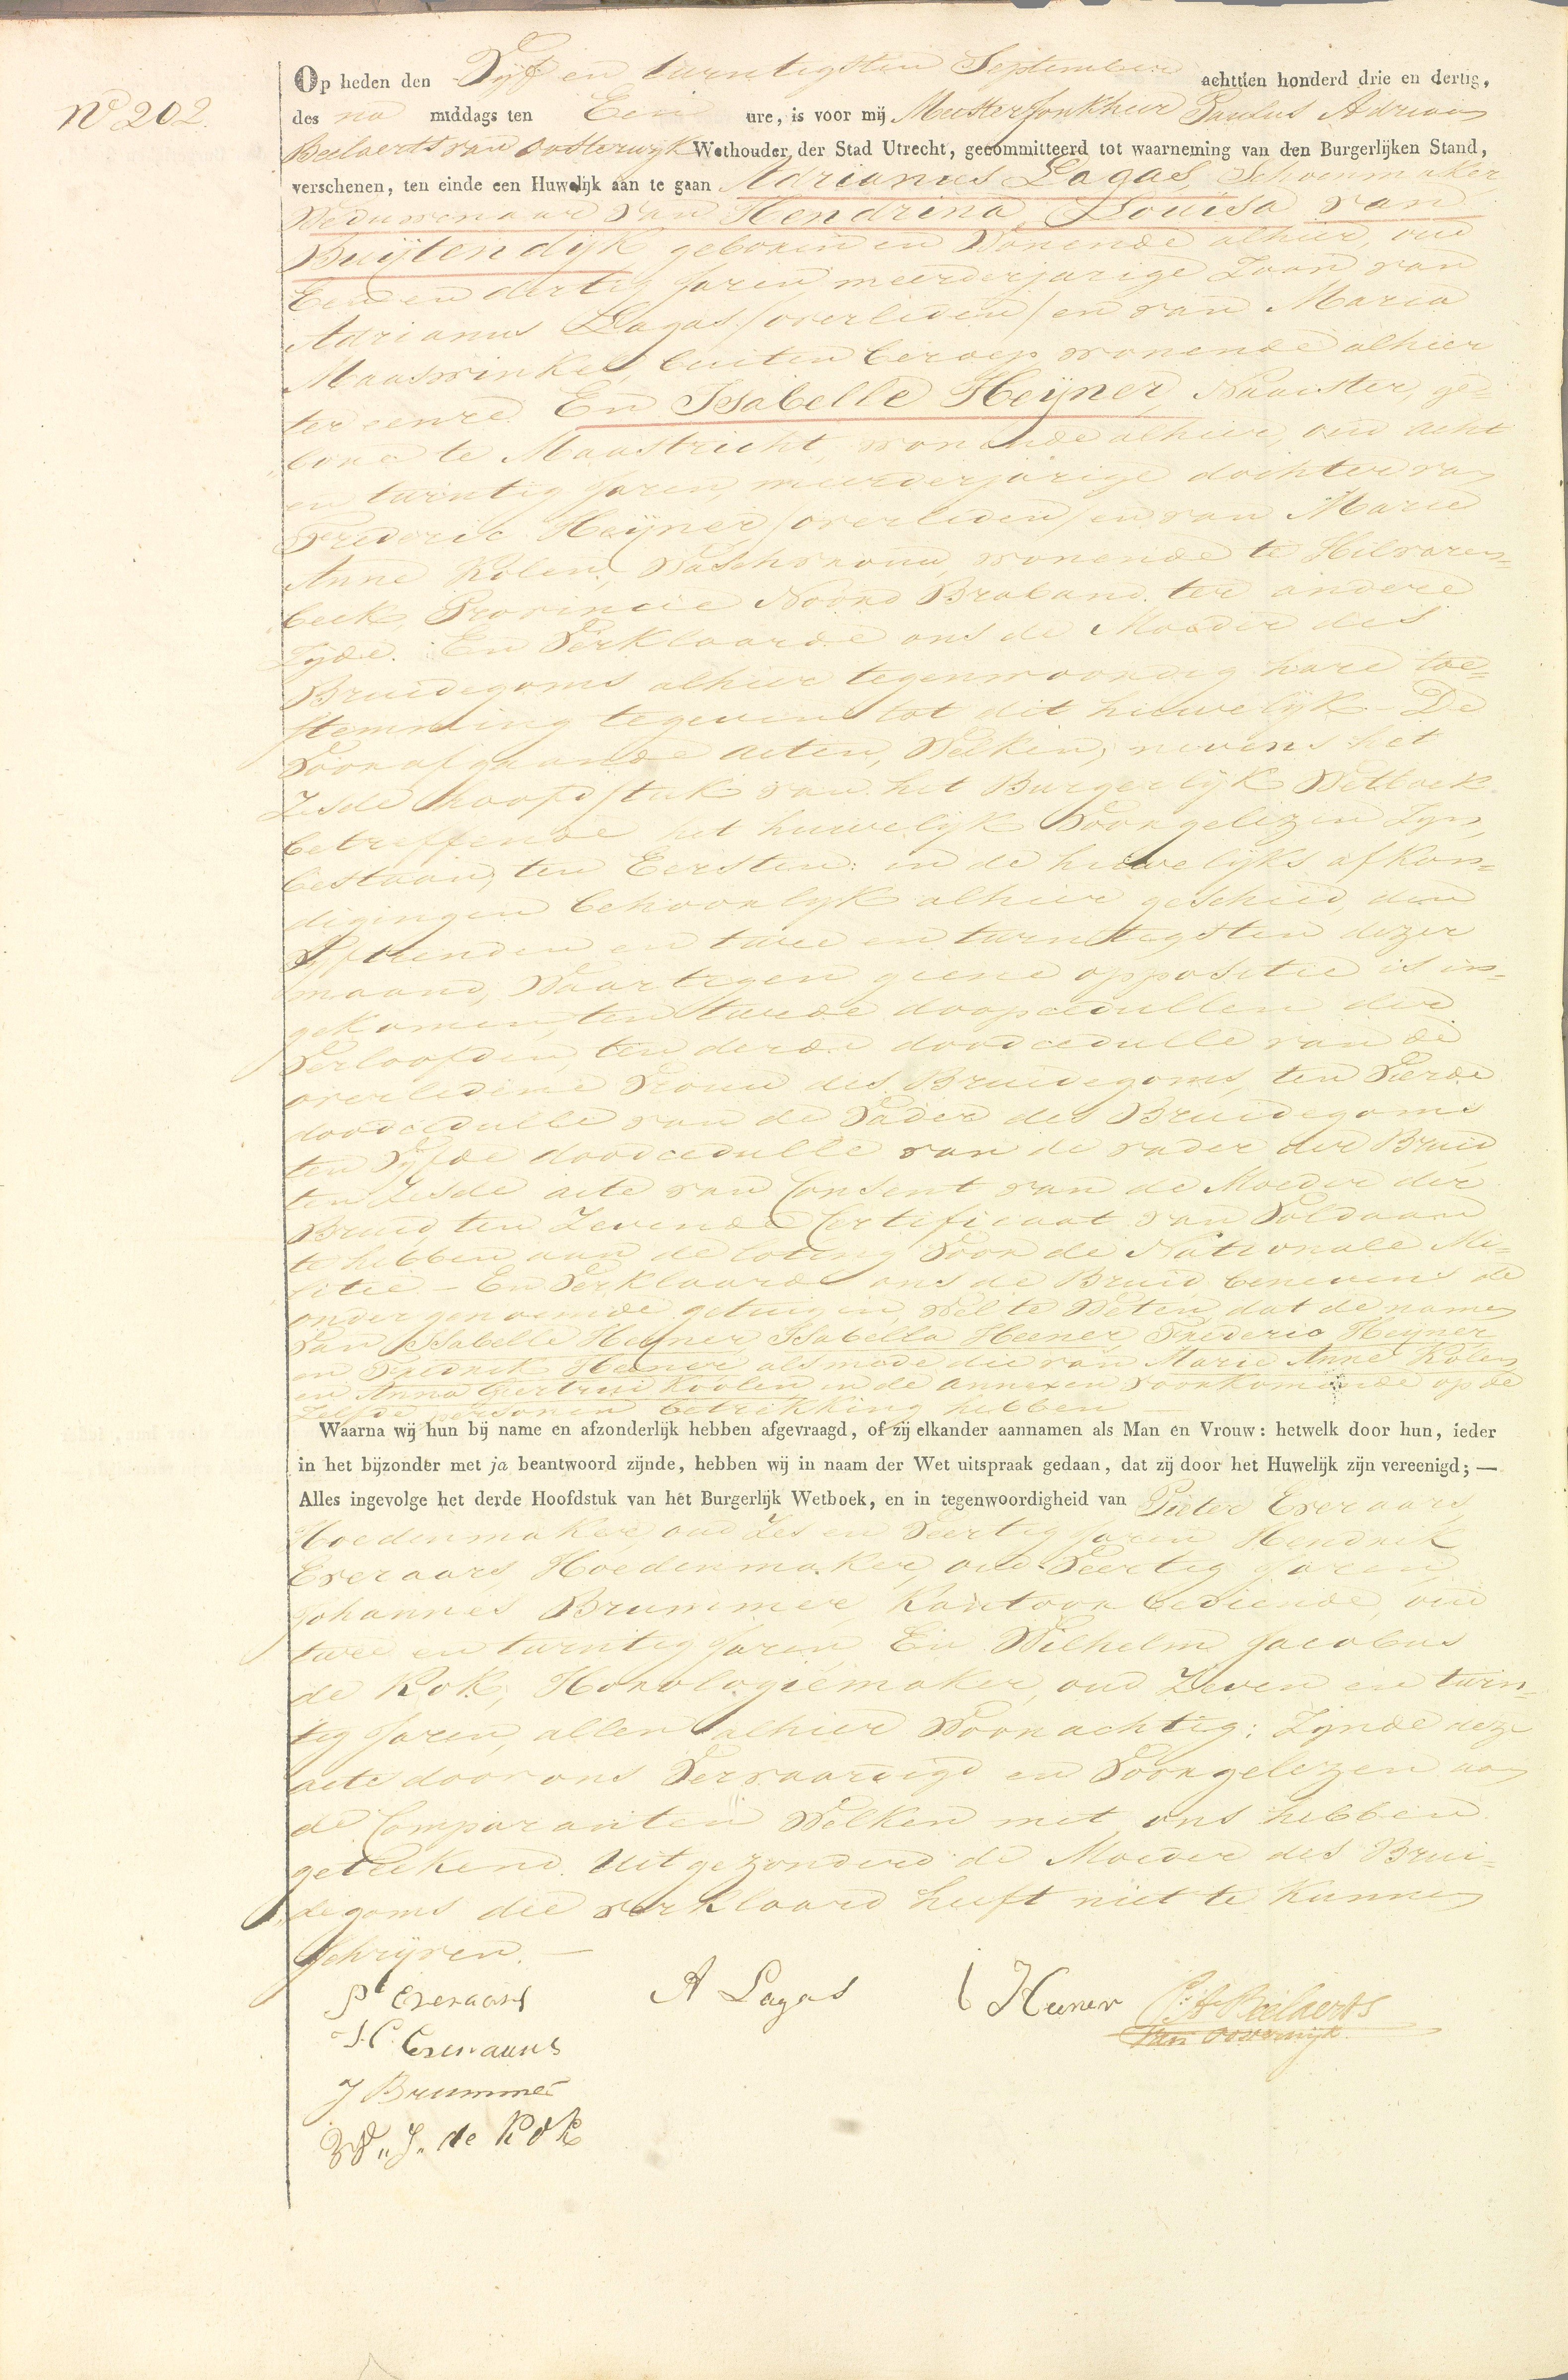 No 202.
Op heden den Vijf en twentigsten September achttien honderd drie en dertig,
des na middags ten Een ure, is voor mij Meester Jonkheer Paulus Adriaan
Beelaerts van Oosterwijk Wethouder der Stad Utrecht, gecommitteerd tot waarneming van den Burgerlijken Stand,
verschenen, ten einde een Huwelijk aan te gaan Adrianus Lagas, Schoenmaker
Weduwenaar van Hendrina Louisa van
Buijtendijk geboren en Wonende alhier, oud
Een en dertig Jaren meerderjarige Zoon van
Adrianus Lagas /overleden/ en van Maria
Maaswinkel, buiten beroep wonende alhier
ter eenre En Isabelle Heijner, Naaister, ge=
boren te Maastricht, wonende alhier, oud acht
en twintig Jaren, meerderjarige dochter van
Frederic Heijner /overleden/ en van Marie
Anne Kolen, Waschvrouw, wonende te Hilvaren=
beek Provincie Noord Braband ter andere
Zijde. En Verklaarde ons de Moeder des
Bruidegoms alhier tegenwoordig hare toe=
stemming tegeven tot dit huwelijk - De
Voorafgaande acten, Welken, nevens het
Zesde hoofdstuk van het Burgerlijk Wetboek
betreffende het huwelijk Voorgelezen Zijn,
bestaan, ten Eersten: in de huwelijks afkon=
digingen behoorlijk alhier geschied, den
Vijftienden en twee en twintigsten dezer
maand, Waartegen geene oppositie is in=
gekomen, ten tweede doopcedullen der
Verloofden, ten derde doodcedulle van de
overledene Vrouw des Bruidegoms, ten Vierde
doodcedulle van de Vader des Bruidegoms
ten Vijfde doodcedulle van de vader der Bruid
ten Zesde acte van Consent van de Moeder der
Bruid ten Zevende Certificaat van Voldaan
te hebben aan de loting Voor de Nationale Mi=
litie - En Verklaarde ons de Bruid benevens de
ondergenoemde getuigen, Wel te Weten, dat de namen
van Isabelle Heijner, Isabella Heener, Frederic Heijner
en Fredrik Heener alsmede die van Marie Anne Kolen
en Anna Gertrui Koolen in de annexen voorkomende op de
Zelfde personen betrekking hebben
Waarna wij hun bij name en afzonderlijk hebben afgevraagd, of zij elkander aannamen als Man en Vrouw: hetwelk door hun, ieder
in het bijzonder met ja beantwoord zijnde, hebben wij in naam der Wet uitspraak gedaan, dat zij door het Huwelijk zijn vereenigd; —
Alles ingevolge het derde Hoofdstuk van het Burgerlijk Wetboek, en in tegenwoordigheid van Pieter Everaars
Hoedenmaker, oud Zes en Veertig Jaren Hendrik
Everaars, Hoedenmaker, oud Veertig Jaren,
Johannes Brummer, Kantoor bediende, oud
twee en twintig Jaren, En Wilhelm Jacobus
de Kok, Horologiemaker, oud Zeven en twin=
tig Jaren, allen alhier Woonachtig: Zijnde deze
acte door ons Vervaardigd en Voorgelezen aan
de Comparanten Welken met ons hebben
geteekend. Uitgezonderd de Moeder des Brui=
degoms die verklaard heeft niet te kunnen
Schrijven. —
Pt Everaars A Lagas I Heener P: A: Beelaerts
van Oosterwijk
H. Everaars
J Brummer
W. J. de Kok